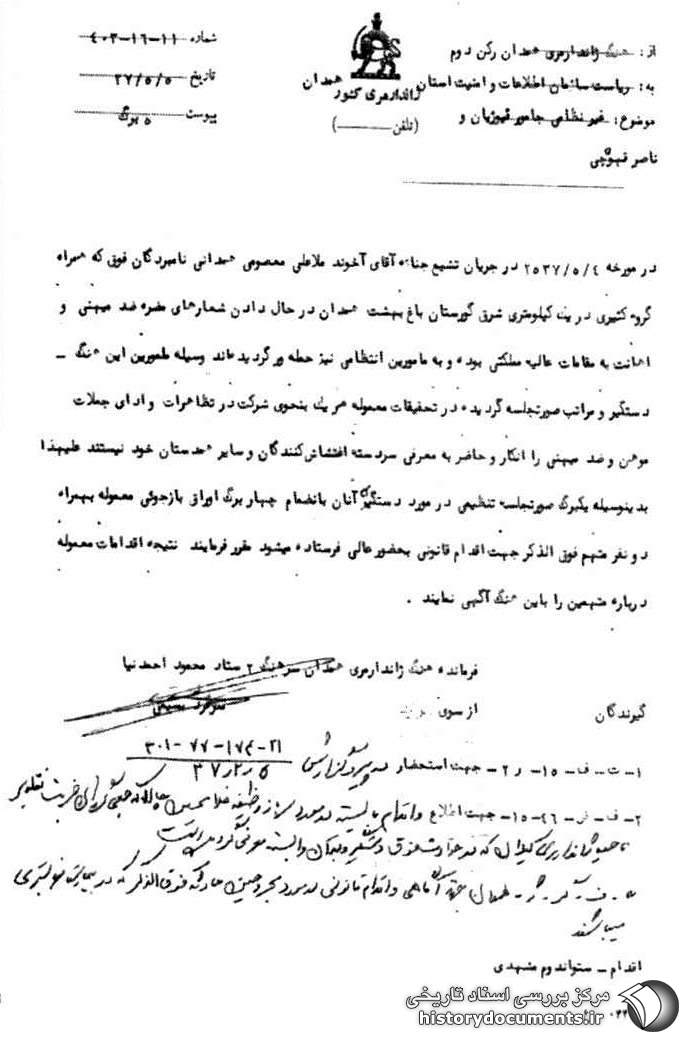 از: هنگ ژاندارمری همدان رکن دوم
به: ریاست سازمان اطلاعات و امنیت استان همدان
موضوع: غیر نظامی و
ناصر قهوه‌چی
ژاندارمری کشور
(تلفن ــــــ)
شماره ۱۱-۱۶-۴۰۳
تاریخ ۳۷/۵/۵
پیوست ۵ برگ
در مورخه ۲۵۳۷/۵/۴ در جریان تشیع جنازه آقای آخوند ملاعلی معصومی همدانی نامبردگان فوق که همراه
گروه کثیری در یک کیلومتری شرق گورستان باغ بهشت همدان در حال دادن شعارهای مضره ضد میهنی و
اهانت به مقامات عالیه مملکتی بوده و به مامورین انتظامی نیز حمله ور گردیده‌اند وسیله مامورین این هنگ ـ
دستگیر و مراتب صورتجلسه گردیده در تحقیقات معموله هر یک بنحوی شرکت در تظاهرات و ادای جملات
موهن و ضد میهنی را انکار و حاضر به معرفی سردسته اغتشاش کنندگان و سایر همدستان خود نیستند علیهذا
بدینوسیله یکبرگ صورتجلسه تنظیمی در مورد دستگیری آنان بانضمام چهار برگ اوراق بازجوئی معموله بهمراه
دو نفر متهم فوق الذکر جهت اقدام قانونی بحضور عالی فرستاده میشود مقرر فرمایند نتیجه اقدامات معموله
درباره متهمین را باین هنگ آگهی نمایند .
فرمانده هنگ ژاندارمری همدان سرهنگ ۲ ستاد محمود احمدنیا
گیرندگان
از سوی
۱- ت- ف- ۱۵- ر۲- جهت استحضار پیرو گزارش ۲۱-۱۷۴-۷۷-۳۰۱
۳۷/۲/۵
۲- ف- ۴۶-۱۵- جهت اطلاع و اقدام
جهت آگاهی و اقدام قانونی در مورد مجروحین فوق الذکر که در
میباشند
اقدام ـ ستواندوم مشهدی
مرکز بررسی اسناد تاریخی
historydocuments.ir